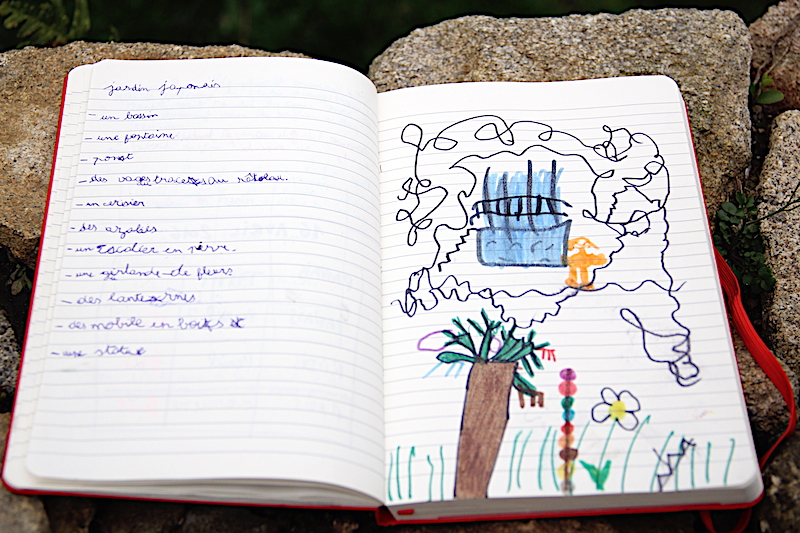 jardin japonais
- un bassin
- une fontaine
- pont
- des vagues tracetes au râteau.
- un cerisier
- des azalés
- un Escalier en pierre.
- une girlande de fleurs
- des lanternes
- des mobile en bois
- une statue